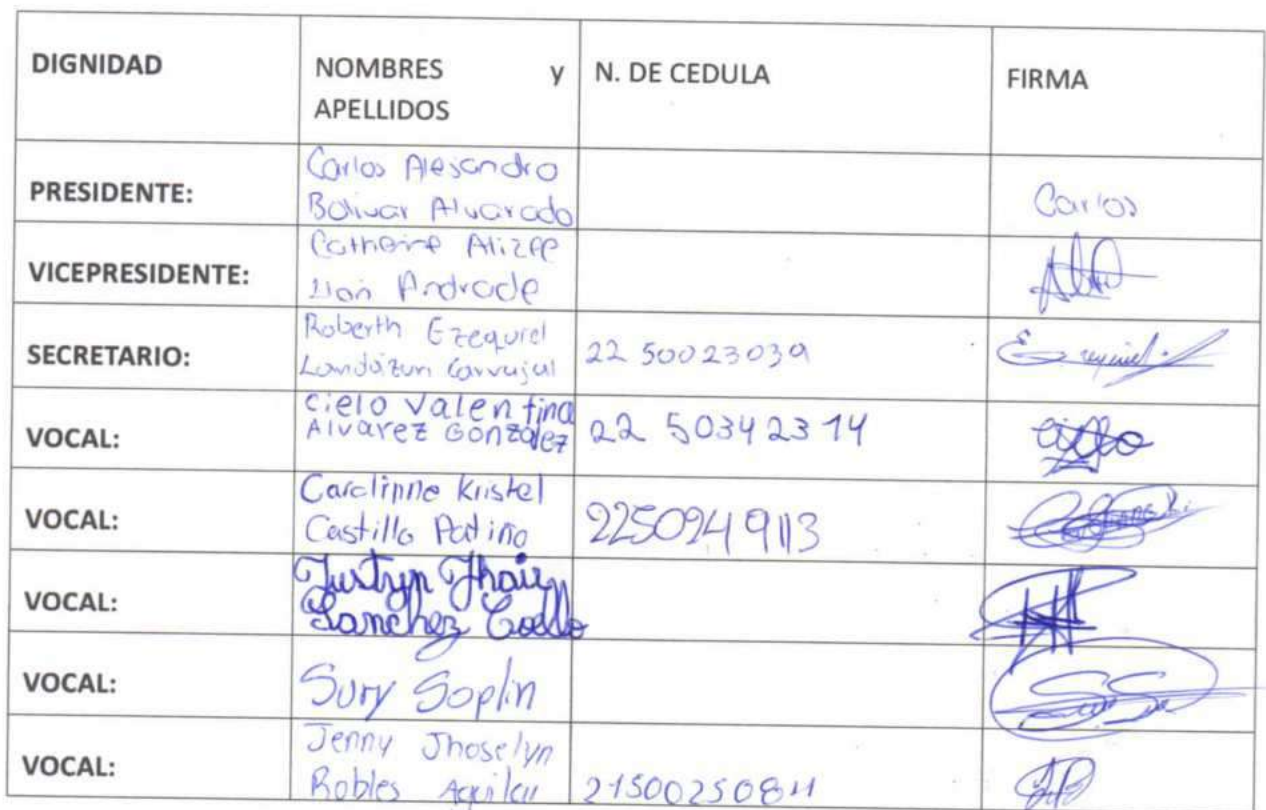 DIGNIDAD
NOMBRES y
APELLIDOS
N. DE CEDULA
FIRMA
PRESIDENTE:
Carlos Alejandro
Bolivar Alvarado
Carlos
VICEPRESIDENTE:
Catherine Alizee
Andrade
SECRETARIO:
Roberth Ezequiel
Landázuri Carvajal
2250023039
Ezequiel
VOCAL:
Cielo Valentina
Alvarez Gonzalez
22 50342314
Cielo
VOCAL:
Carolinne Kristel
Castillo Patiño
2250249113
VOCAL:
Justyn Jhair
Sanchez Coello
VOCAL:
Sury Soplin
VOCAL:
Jenny Jhoselyn
Robles Aguilar